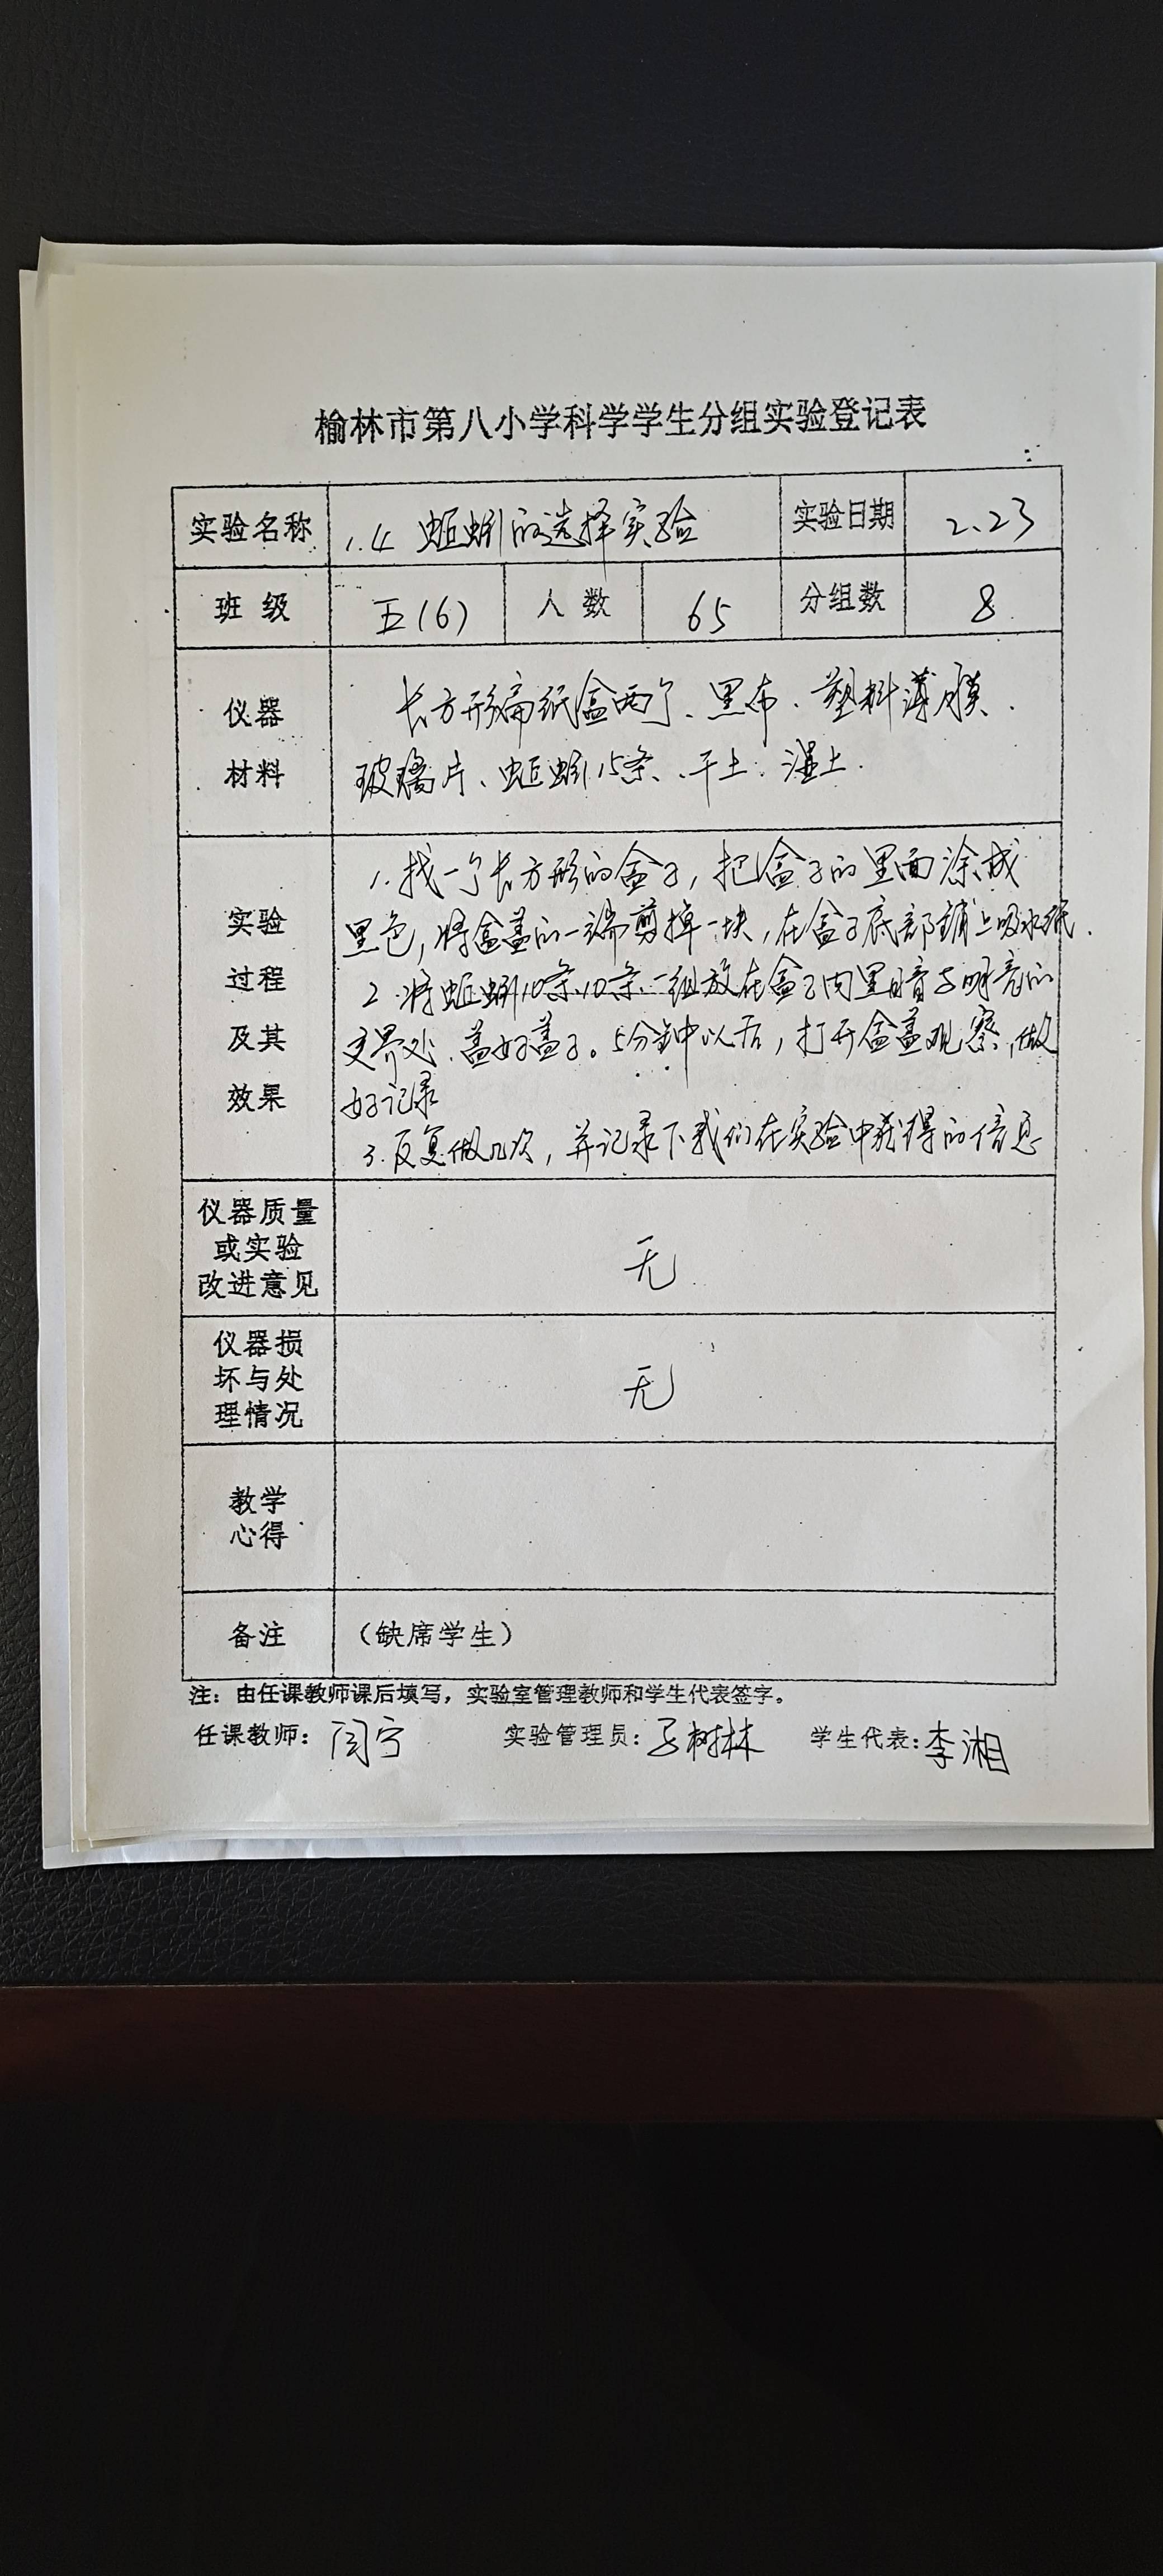 榆林市第八小学科学学生分组实验登记表
实验名称 1.4 蚯蚓的选择实验 实验日期 2.23
班级 五(6) 人数 65 分组数 8
仪器材料
长方形扁纸盒两个、黑布、塑料薄膜、
玻璃片、蚯蚓15条、干土、湿土.
实验过程及其效果
1.找一个长方形的盒子,把盒子的里面涂成
黑色,将盒盖的一端剪掉一块,在盒子底部铺上吸水纸.
2.将蚯蚓10条、10条一组放在盒子内黑暗与明亮的
交界处、盖好盖子。5分钟以后,打开盒盖观察,做
好记录
3.反复做几次,并记录下我们在实验中获得的信息
仪器质量或实验改进意见 无
仪器损坏与处理情况 无
教学心得
备注 (缺席学生)
注:由任课教师课后填写,实验室管理教师和学生代表签字。
任课教师:闫宁 实验管理员:树林 学生代表:李湘